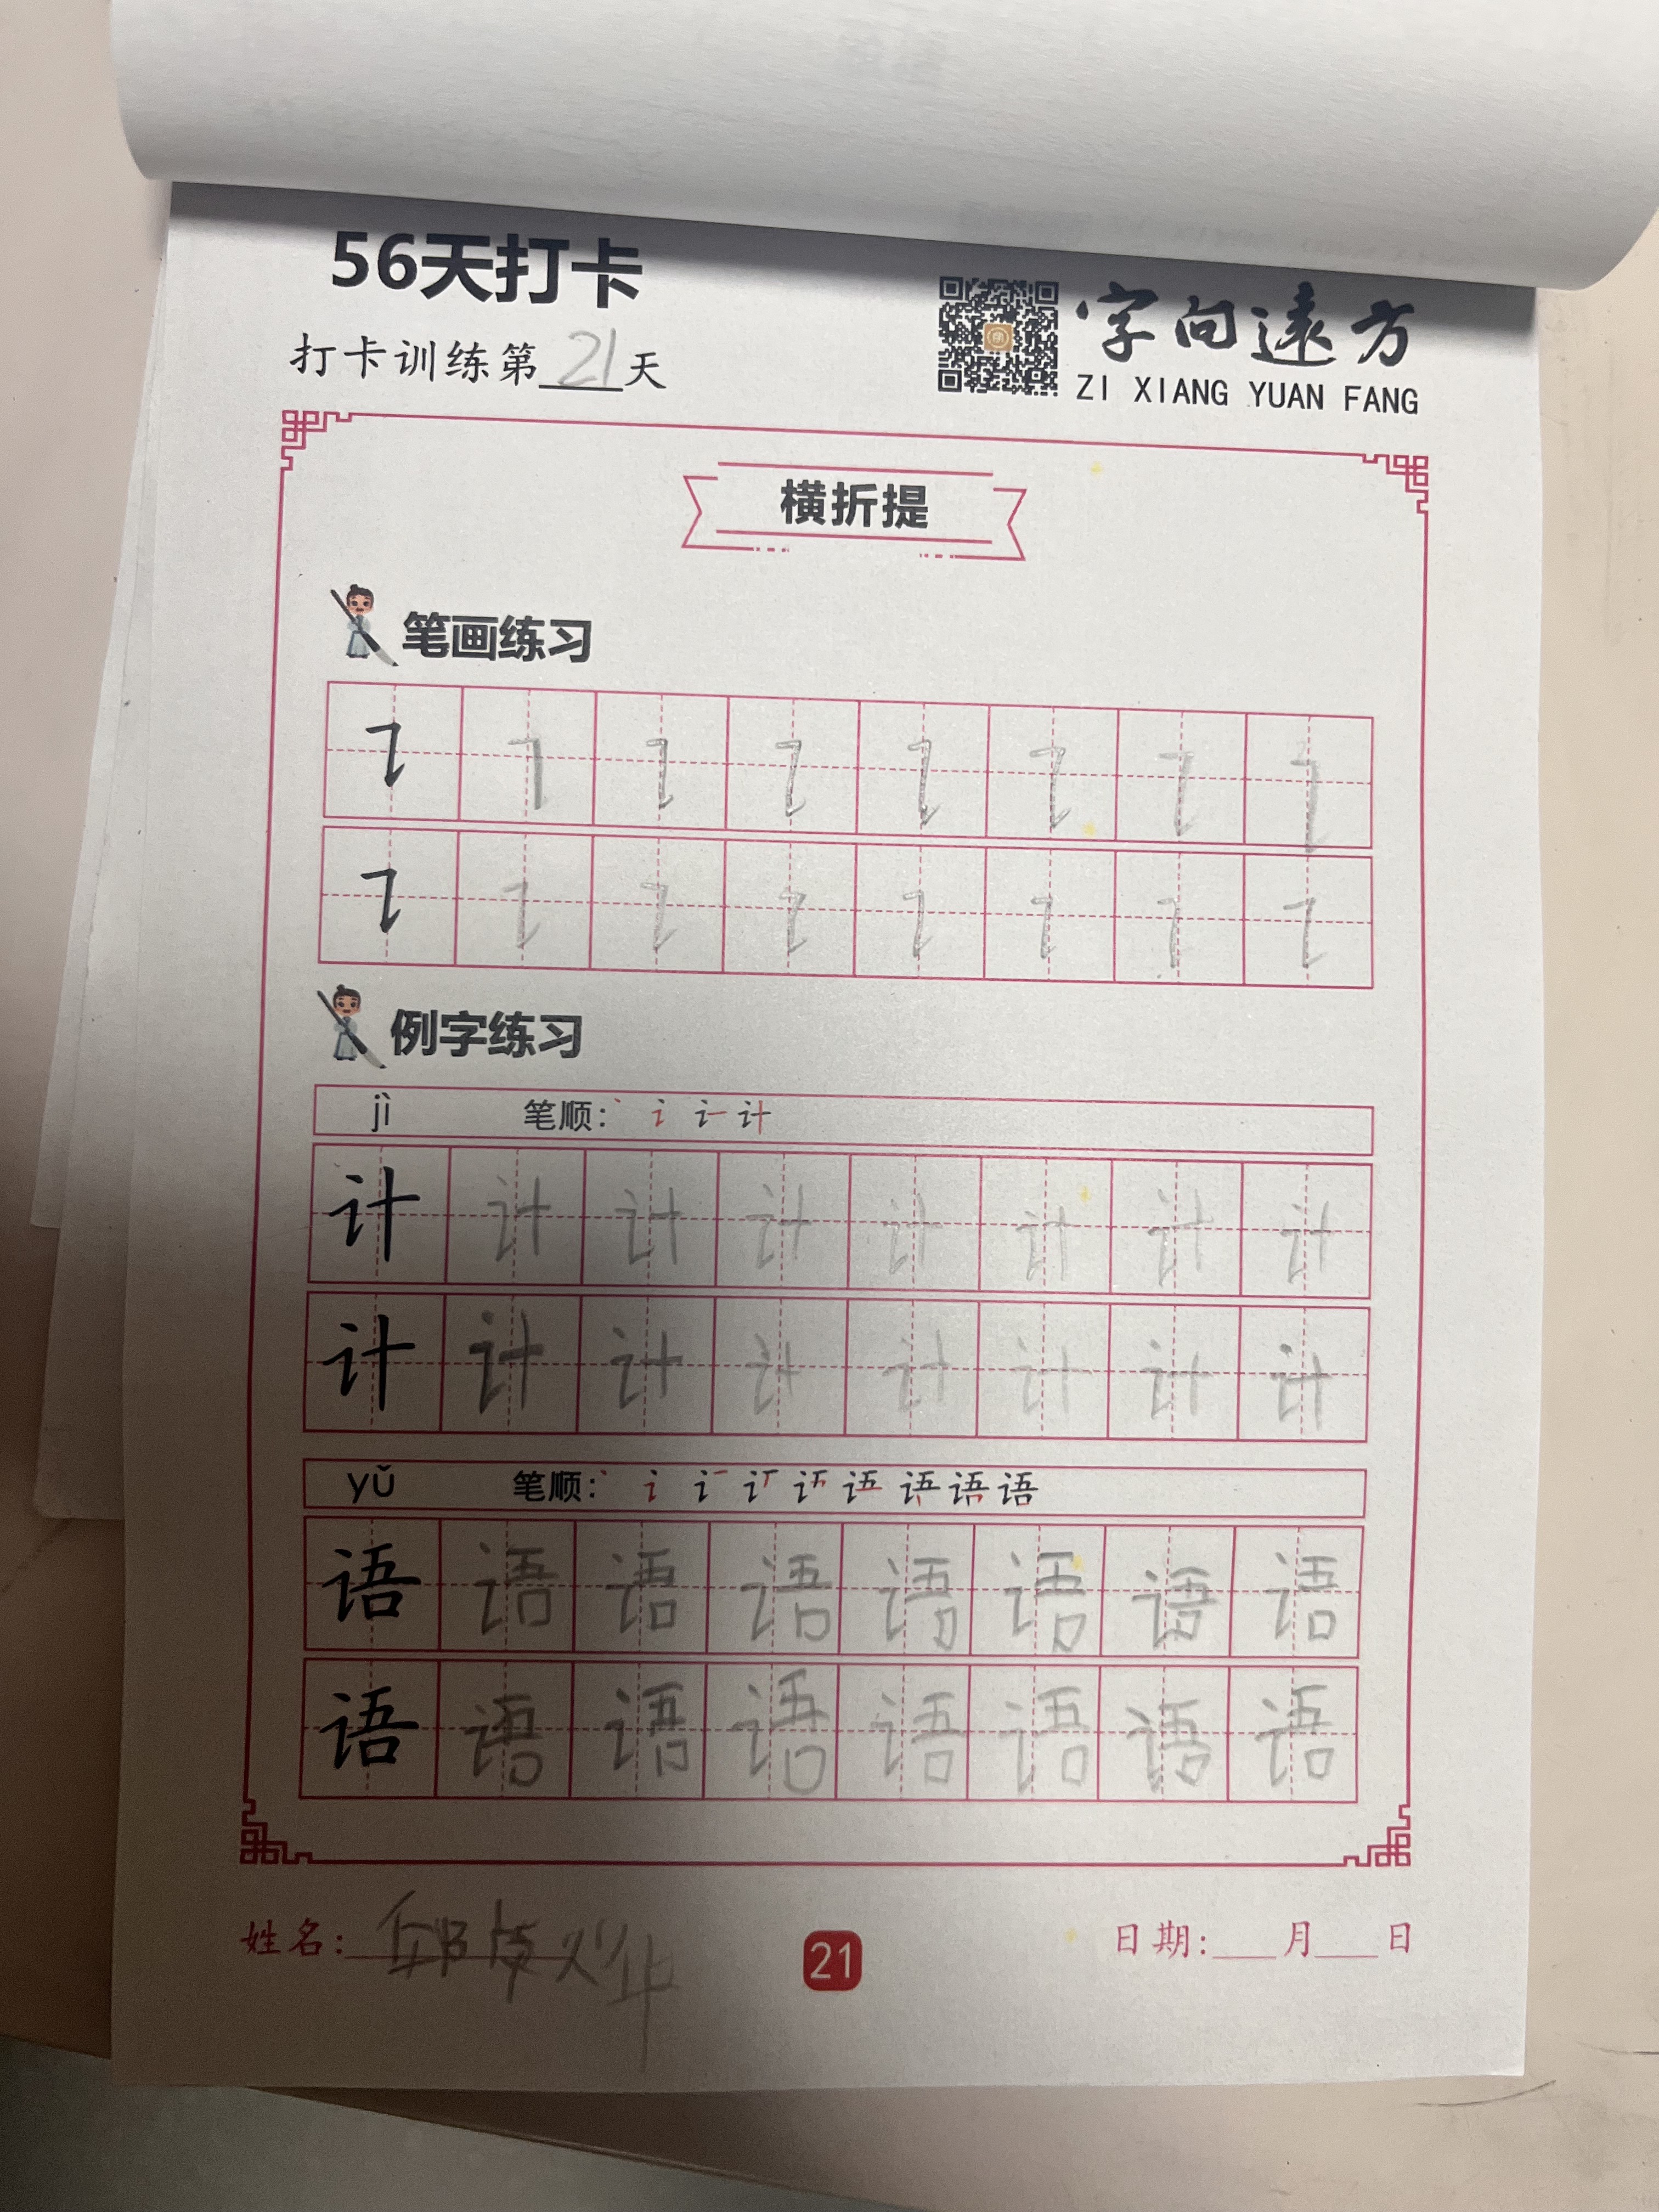 56天打卡
打卡训练第21天
字向遠方
ZI XIANG YUAN FANG
横折提
笔画练习
例字练习
jì 笔顺:
计 计 计 计 计 计 计 计
计 计 计 计 计 计 计 计
yǔ 笔顺:
语 语 语 语 语 语 语 语
语 语 语 语 语 语 语 语
姓名:
21
日期:___月___日